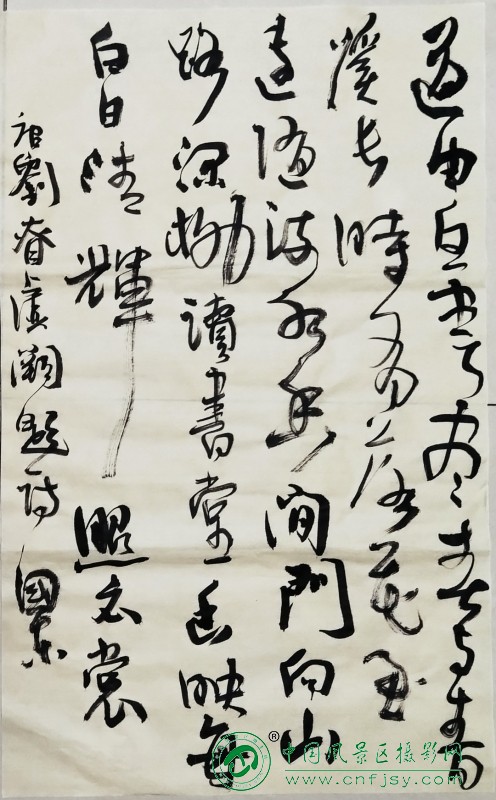 道由白雲盡春与青
溪长時有落花至
遠随流水香閒門向山
路深柳讀書堂幽映每
白日清輝照衣裳
唐劉眘虛闕題詩國
®
中国風景区摄影网
www.cnfjsy.com